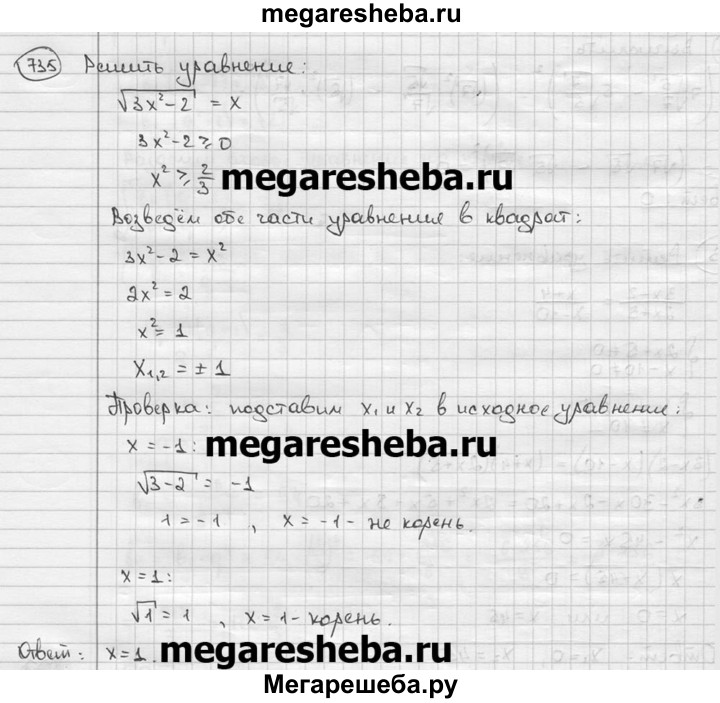 megaresheba.ru
735 Решить уравнение:
√3x²-2 = x
3x²-2 ≥ 0
x² ≥ 2/3 megaresheba.ru
Возведём обе части уравнения в квадрат:
3x²-2 = x²
2x² = 2
x² = 1
x₁,₂ = ± 1
Проверка: подставим x₁ и x₂ в исходное уравнение:
x = -1: megaresheba.ru
√3-2 = -1
1 = -1 , x = -1 - не корень.
x = 1:
√1 = 1 , x = 1 - корень.
Ответ: x=1. megaresheba.ru
Мегарешеба.ру